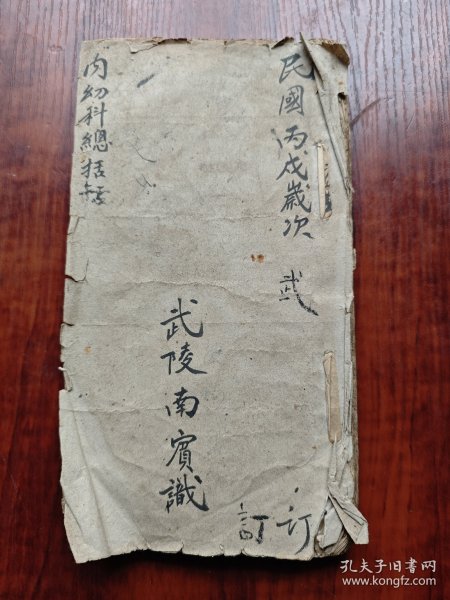 民國丙戌歲次 武
訂
訂
武陵南賓識
内幼科總括
孔夫子旧书网
www.kongfz.com